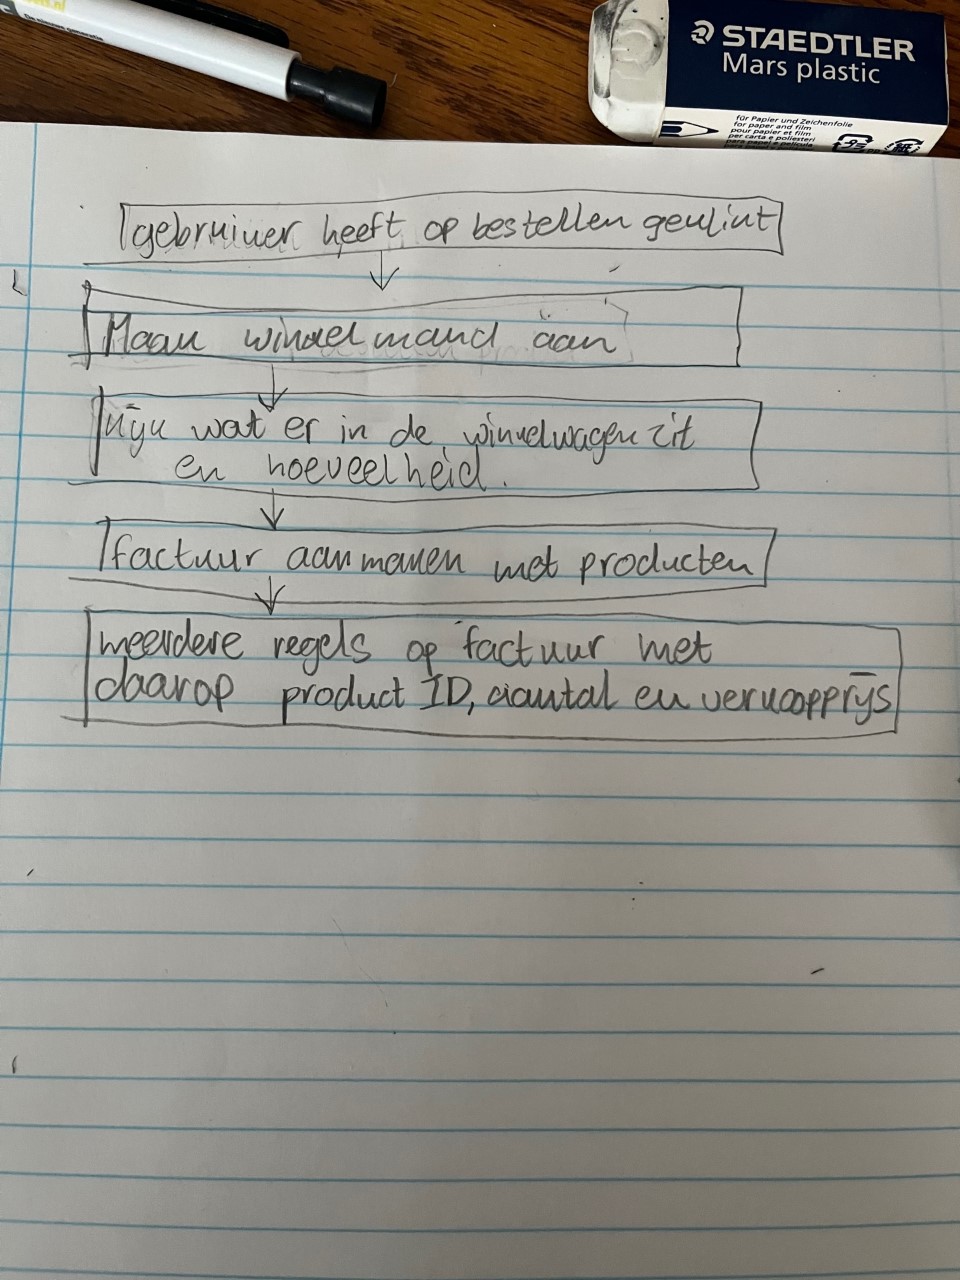 De nieuwe generatie
STAEDTLER
Mars plastic
für Papier und Zeichenfolie
for paper and film
pour papier et film
per carta e poliesteri
para papel y película
gebruiker heeft op bestellen geklikt
Maak winkelmand aan
Kijk wat er in de winkelwagen zit
en hoeveelheid.
factuur aanmaken met producten
meerdere regels op factuur met
daarop product ID, aantal en verkoopprijs